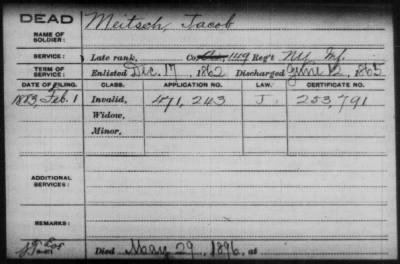 DEAD
NAME OF SOLDIER: Meitsch, Jacob
SERVICE: Late rank, Co. 119 Reg't NY Inf.
TERM OF SERVICE: Enlisted Dec. 17, 1862 Discharged June 12, 1865
DATE OF FILING. CLASS. APPLICATION NO. LAW. CERTIFICATE NO.
1883, Feb. 1 Invalid, 471,243 J. 253,791
Widow,
Minor,
ADDITIONAL SERVICES:
REMARKS:
Died May 29, 1896, at